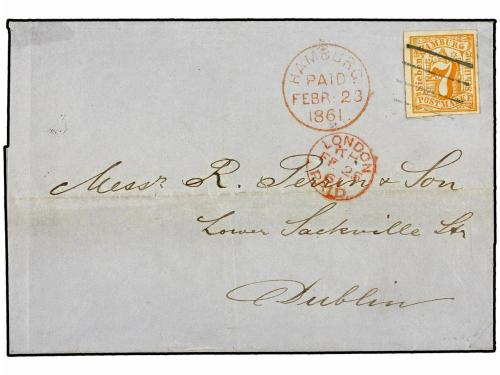 HAMBURG
Sieben
7
POSTMARKE
HAMBURG.
PAID
FEBR: 23
1861.
LONDON
FE 26
61
PAID
Messrs. R. Perrin & Son
Lower Sackville Str
Dublin